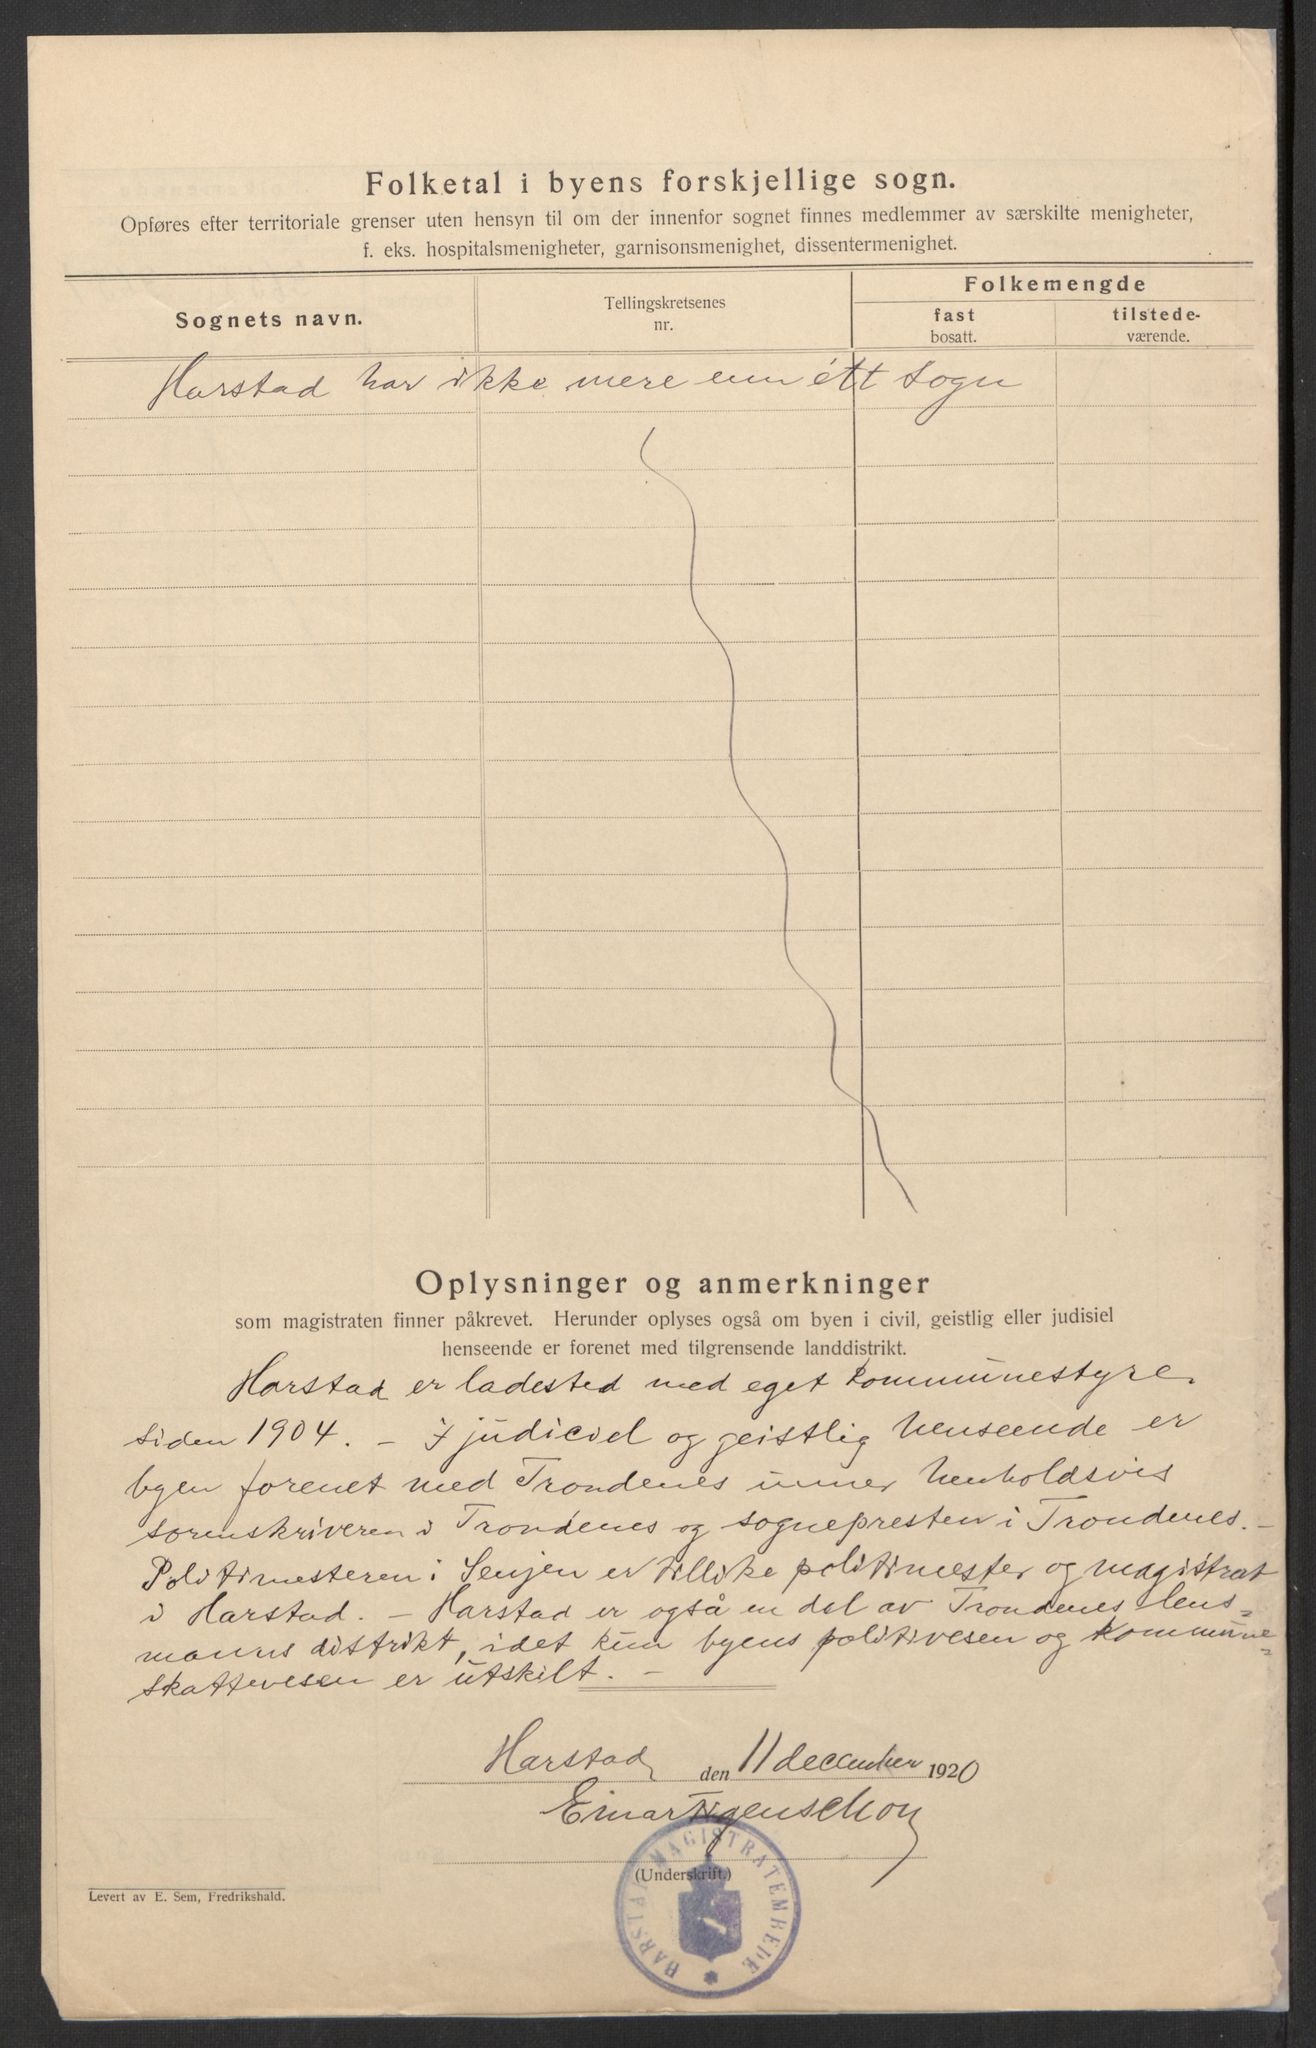 Folketal i byens forskjellige sogn.
Opføres efter territoriale grenser uten hensyn til om der innenfor sognet finnes medlemmer av særskilte menigheter,
f. eks. hospitalsmenigheter, garnisonsmenighet, dissentermenighet.
Sognets navn.
Tellingskretsenes
nr.
Folkemengde
fast
bosatt.
tilstede-
værende.
Harstad har ikke mere enn étt sogn
Oplysninger og anmerkninger
som magistraten finner påkrevet. Herunder oplyses også om byen i civil, geistlig eller judisiel
henseende er forenet med tilgrensende landdistrikt.
Harstad er ladested med eget kommunestyre
siden 1904. - I judiciel og geistlig henseende er
byen forenet med Trondenes unner henholdsvis
sorenskriveren i Trondenes og sognepresten i Trondenes. -
Politimesteren i Senjen er tillike politimester og magistrat
i Harstad. - Harstad er også en del av Trondenes lens=
manns distrikt, idet kun byens politivesen og kommune=
skattevesen er utskilt. -
Harstad den 11 december 1920
Einar
(Underskrift.)
HARSTAD MAGISTRATEMBEDE
Levert av E. Sem, Fredrikshald.